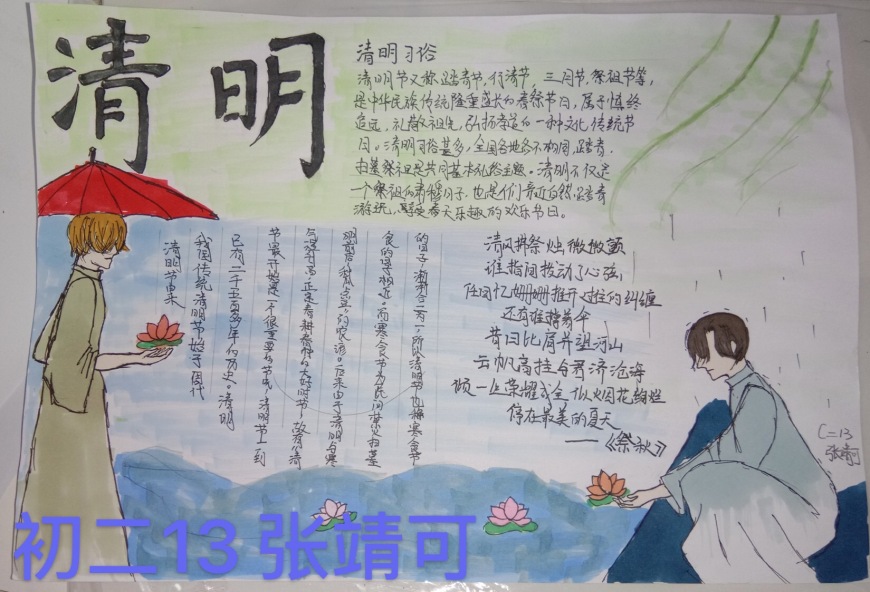 清明
清明习俗
清明节又称踏青节,行清节,三月节,祭祖节等,
是中华民族传统隆重盛大的春祭节日,属于慎终
追远,礼敬祖先,弘扬孝道的一种文化传统节
日。清明习俗甚多,全国各地各不相同,踏青.
扫墓祭祖是共同基本礼俗主题。清明不仅是
一个祭祖的肃穆日子.也是人们亲近自然,踏青
游玩,享受春天乐趣的欢乐节日。
清明节由来
我国传统清明节始于周代
已有二千五百多年的历史。清明
节最开始是一个很重要的节气,清明一到
气温升高,正是春耕春种的大好时节,故有“清
明前后,种瓜点豆”的农谚。后来由于清明与寒
食的日子相近。而寒食节为民间禁火扫墓
的日子,渐渐合二为一,所以清明节也称寒食节
清风拂祭烛,微微颤
谁指间拨动了心弦
任回忆姗姗推开过往的纠缠
还有谁撑着伞
昔日比肩并望河山
云帆高挂,会君济沧海
烟花绚烂
停在最美的夏天
——《祭秋》
初二13
张靖可
初二13 张靖可